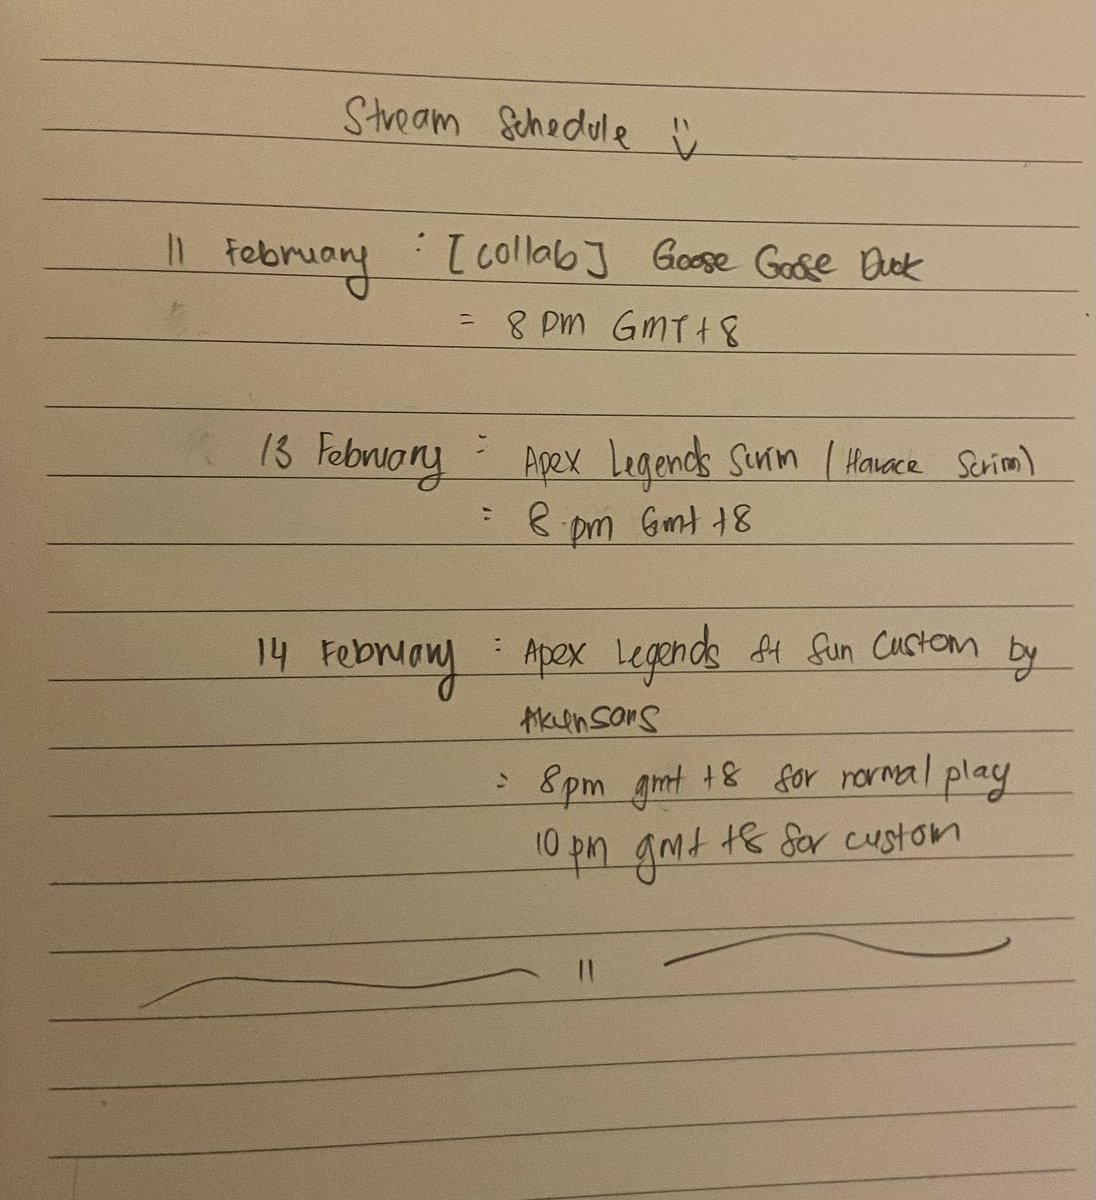 Stream Schedule
11 February : [collab] Goose Goose Duck
= 8 pm GMT+8
13 February : Apex Legends Scrim (Havace Scrim)
: 8 pm Gmt +8
14 February : Apex Legends ft fun Custom by
: 8pm gmt +8 for normal play
10 pm gmt +8 for custom